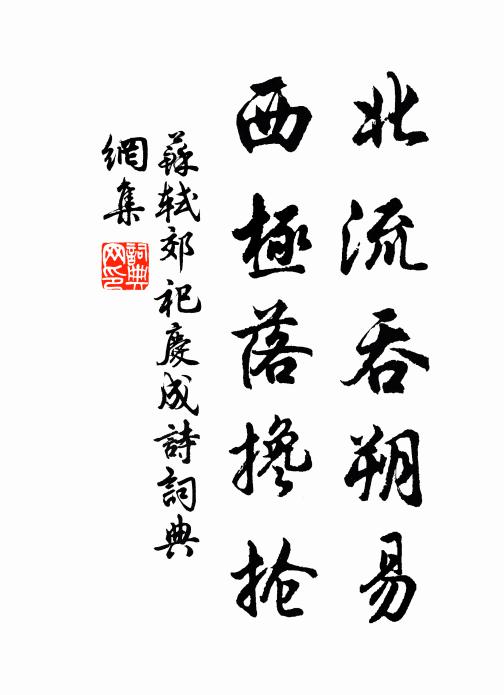 北流吞朔易
西極落攙抢
蘇軾郊祀慶成詩詞典
網集
詞典网印